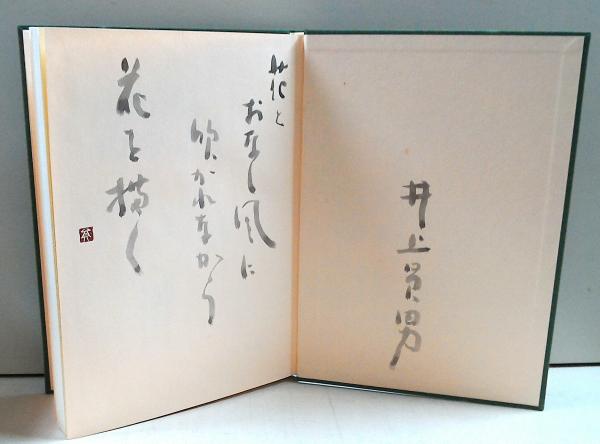 井上員男
花と
おなじ風に
吹かれながら
花を描く